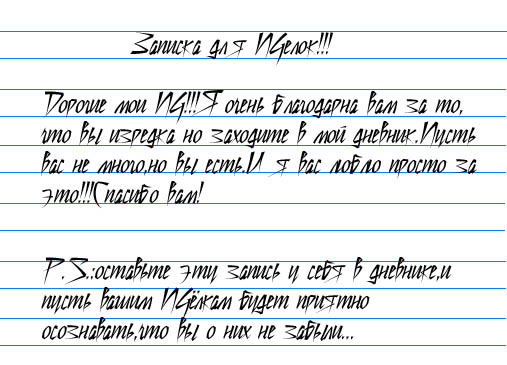 Записка для ПЧелок!!!
Дорогие мои ПЧ!!!Я очень благодарна вам за то,
что вы изредка но заходите в мой дневник.Пусть
вас не много,но вы есть.И я вас лювлю просто за
это!!!Спасибо вам!
P.S.:оставьте эту запись у себя в дневнике,и
пусть вашим ПЧёлкам будет приятно
осознавать,что вы о них не забыли...